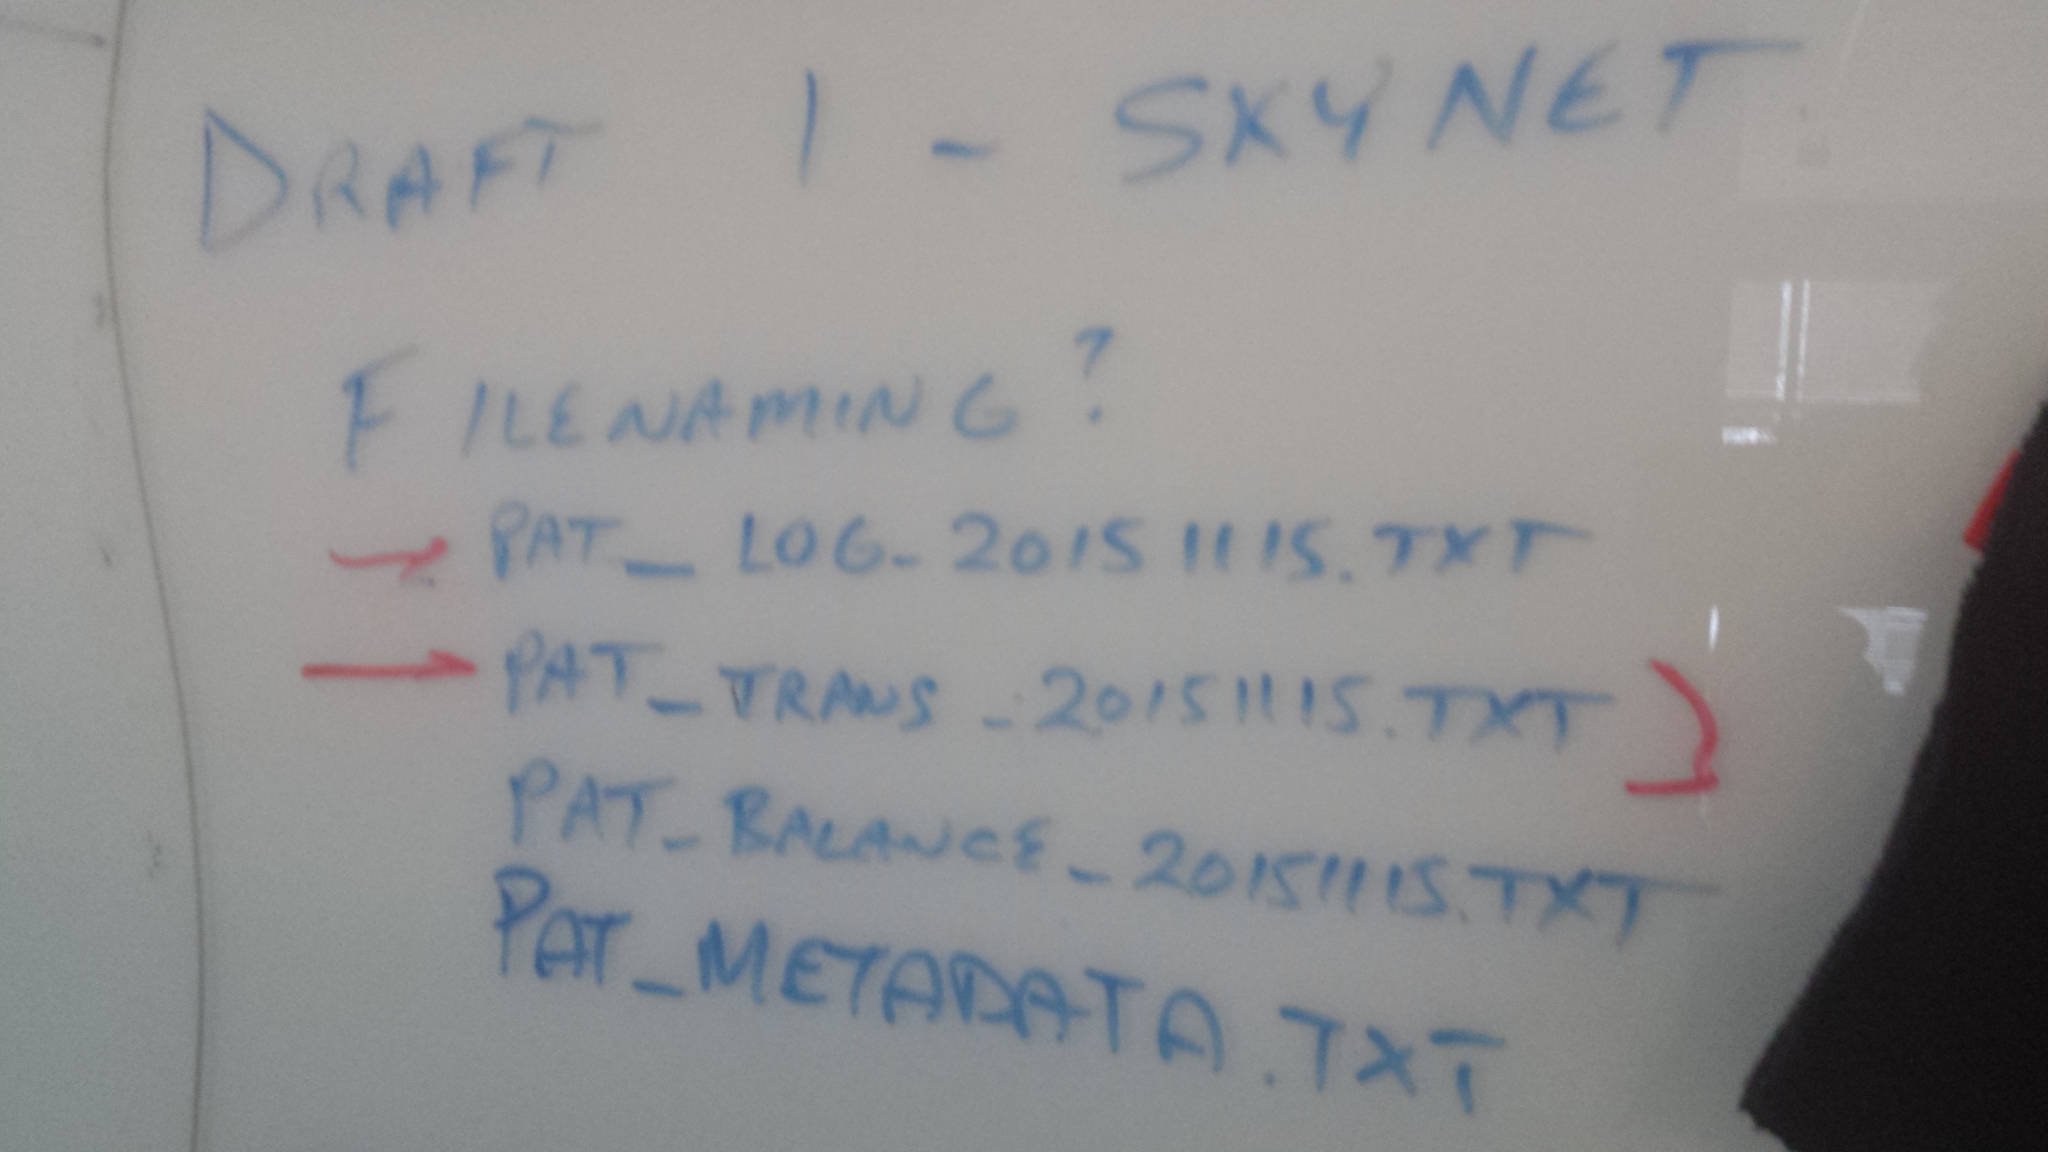 DRAFT 1 - SKYNET
FILENAMING?
PAT_LOG_20151115.TXT
PAT_TRANS_20151115.TXT
PAT_BALANCE_20151115.TXT
PAT_METADATA.TXT